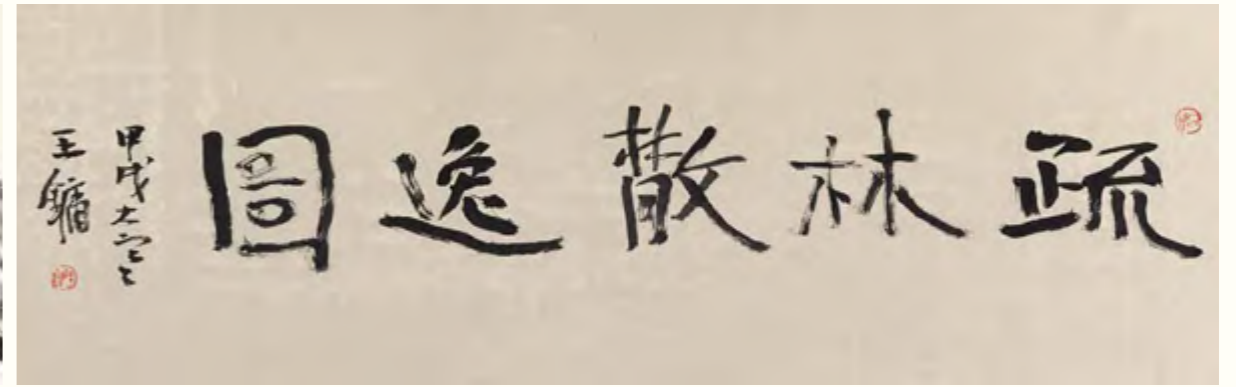 疏林散逸圖
甲戌大寒
王鏞